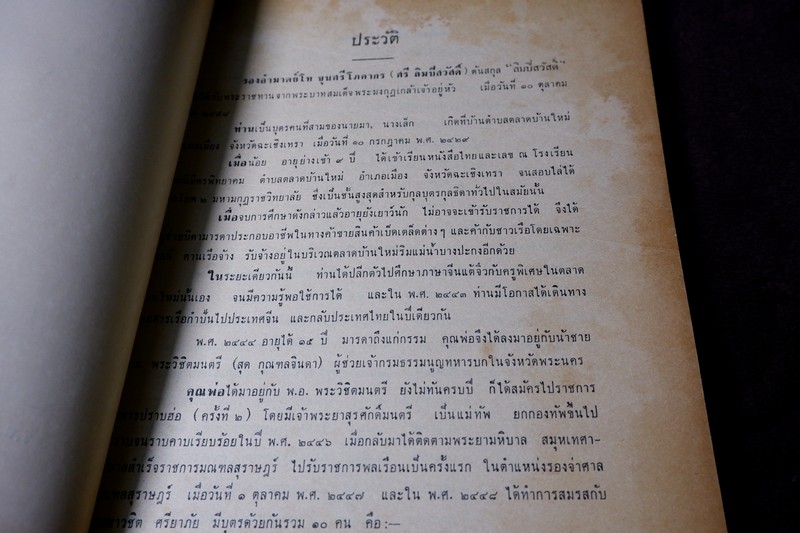 ประวัติ
รองอำมาตย์โท ขุนศรีโภคากร (ศรี ลิมปิสวัสดิ์) ต้นสกุล "ลิมปิสวัสดิ์"
พระราชทานจากพระบาทสมเด็จพระมงกุฎเกล้าเจ้าอยู่หัว เมื่อวันที่ ๑๐ ตุลาคม
ท่านเป็นบุตรคนที่สามของนายมา, นางเล็ก เกิดที่บ้านตำบลตลาดบ้านใหม่
จังหวัดฉะเชิงเทรา เมื่อวันที่ ๑๐ กรกฎาคม พ.ศ. ๒๔๒๙
เมื่อน้อย อายุย่างเข้า ๙ ปี ได้เข้าเรียนหนังสือไทยและเลข ณ โรงเรียน
พิทยาคม ตำบลตลาดบ้านใหม่ อำเภอเมือง จังหวัดฉะเชิงเทรา จนสอบไล่ได้
๒ มหามกุฏราชวิทยาลัย ซึ่งเป็นชั้นสูงสุดสำหรับกุลบุตรกุลธิดาทั่วไปในสมัยนั้น
เมื่อจบการศึกษาดังกล่าวแล้วอายุยังเยาว์นัก ไม่อาจจะเข้ารับราชการได้ จึงได้
บิดามารดาประกอบอาชีพในทางค้าขายสินค้าเบ็ดเตล็ดต่างๆ และค้ากับชาวเรือโดยเฉพาะ
คานเรือจ้าง รับจ้างอยู่ในบริเวณตลาดบ้านใหม่ริมแม่น้ำบางปะกงอีกด้วย
ในระยะเดียวกันนี้ ท่านได้ปลีกตัวไปศึกษาภาษาจีนแต้จิ๋วกับครูพิเศษในตลาด
ใหม่นั้นเอง จนมีความรู้พอใช้การได้ และใน พ.ศ. ๒๔๔๓ ท่านมีโอกาสได้เดินทาง
เรือกำปั่นไปประเทศจีน และกลับประเทศไทยในปีเดียวกัน
พ.ศ. ๒๔๔๔ อายุได้ ๑๕ ปี มารดาถึงแก่กรรม คุณพ่อจึงได้ลงมาอยู่กับน้าชาย
พระวิชิตมนตรี (สุด กุณฑลจินดา) ผู้ช่วยเจ้ากรมธรรมนูญทหารบกในจังหวัดพระนคร
คุณพ่อได้มาอยู่กับ พ.อ. พระวิชิตมนตรี ยังไม่ทันครบปี ก็ได้สมัครไปราชการ
ปราบฮ่อ (ครั้งที่ ๒) โดยมีเจ้าพระยาสุรศักดิ์มนตรี เป็นแม่ทัพ ยกกองทัพขึ้นไป
จนราบคาบเรียบร้อยในปี พ.ศ. ๒๔๔๖ เมื่อกลับมาได้ติดตามพระยามหิบาล สมุหเทศา-
สำเร็จราชการมณฑลสุราษฎร์ ไปรับราชการพลเรือนเป็นครั้งแรก ในตำแหน่งรองจ่าศาล
สุราษฎร์ เมื่อวันที่ ๑ ตุลาคม พ.ศ. ๒๔๔๗ และใน พ.ศ. ๒๔๔๘ ได้ทำการสมรสกับ
ชิต ศรียาภัย มีบุตรด้วยกันรวม ๑๐ คน คือ:—